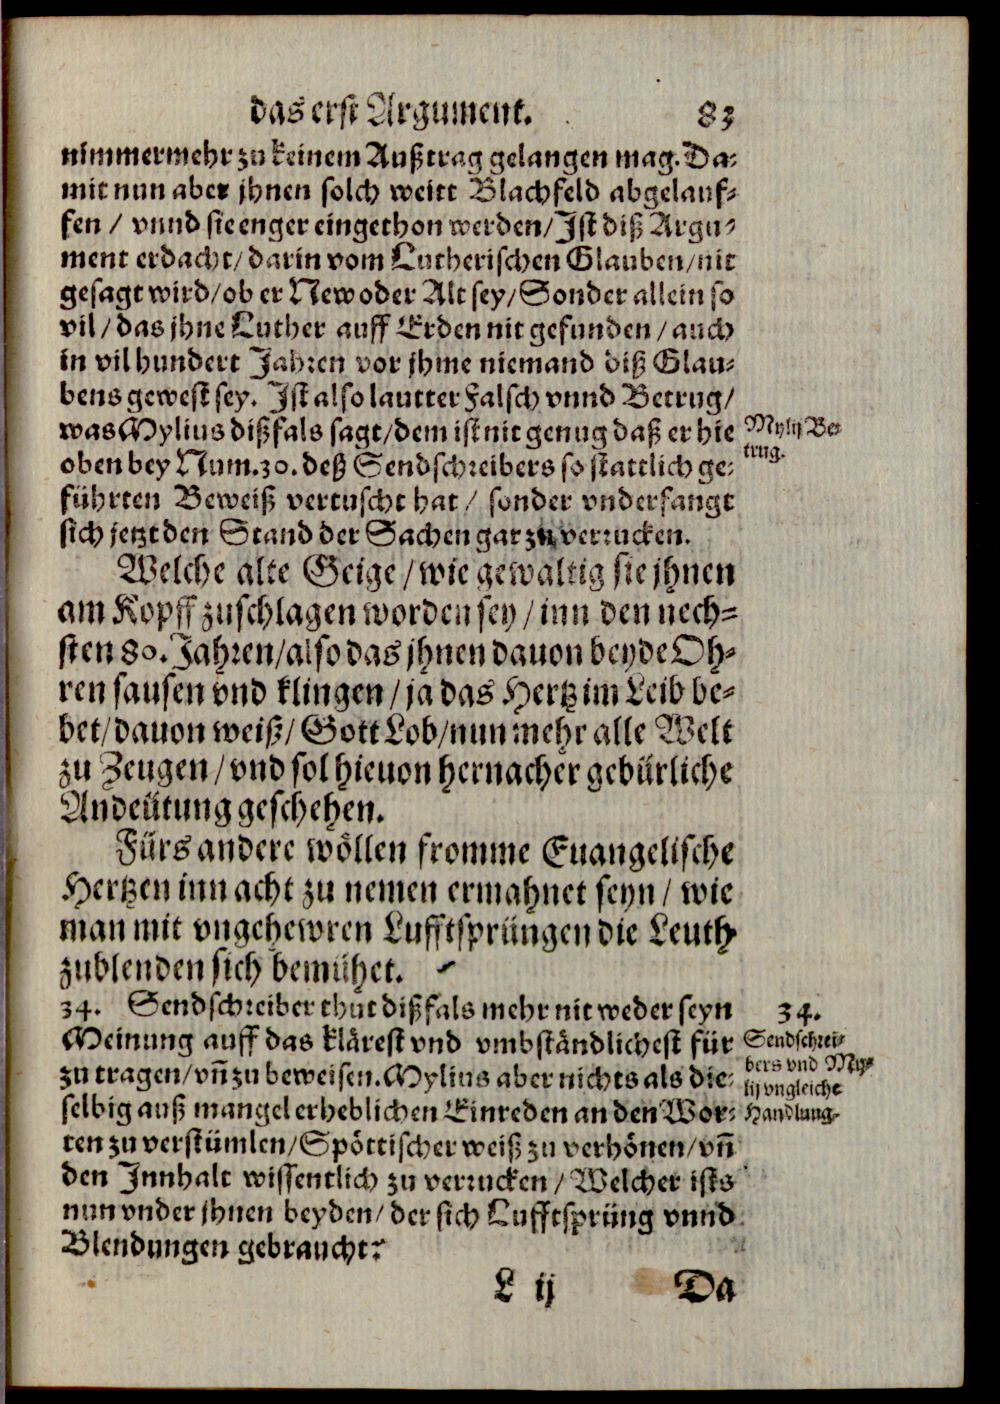 das erst Argument. 83
nimmermehr zu keinem Außtrag gelangen mag. Da-
mit nun aber jhnen solch weitt Blachfeld abgelauf-
fen / vnnd sie enger eingethon werden/ Jst diß Argu-
ment erdacht/ darin vom Lutherischen Glauben/ nit
gesagt wird/ ob er New oder Alt sey/ Sonder allein so
vil/ das jhne Luther auff Erden nit gefunden / auch
in vil hundert Jahren vor jhme niemand diß Glau-
bens gewest sey. Jst also lautter Falsch vnnd Betrug/
was Mylius dißfals sagt/ dem ist nit genug daß er hie
Mylij Be-
trug.
oben bey Num. 30. deß Sendschreibers so stattlich ge-
führten Beweiß vertuscht hat / sonder vnderfangt
sich jetzt den Stand der Sachen gar zu verrucken.
Welche alte Geige / wie gewaltig sie jhnen
am Kopff zuschlagen worden sey / inn den nech-
sten 80. Jahren/ also das jhnen dauon beyde Oh-
ren sausen vnd klingen / ja das Hertz im Leib be-
bet/ dauon weiß/ Gott Lob/ nun mehr alle Welt
zu Zeugen / vnd sol hieuon hernacher gebürliche
Andeütung geschehen.
Fürs andere wöllen fromme Euangelische
Hertzen inn acht zu nemen ermahnet seyn / wie
man mit vngehewren Lufftsprüngen die Leuth
zublenden sich bemühet.
34. Sendschreiber thut dißfals mehr nit weder seyn
34.
Meinung auff das klärest vnd vmbständlichest für
Sendschrei-
bers vnd My-
lij vngleiche
Handlung.
zu tragen/ vñ zu beweisen. Mylius aber nichts als die-
selbig auß mangel erheblichen Einreden an den Wor-
ten zu verstümlen/ Spöttischer weiß zu verhönen/ vñ
den Innhalt wissentlich zu verrucken / Welcher ists
nun vnder jhnen beyden/ der sich Lufftsprüng vnnd
Blendungen gebraucht?
L ij Da